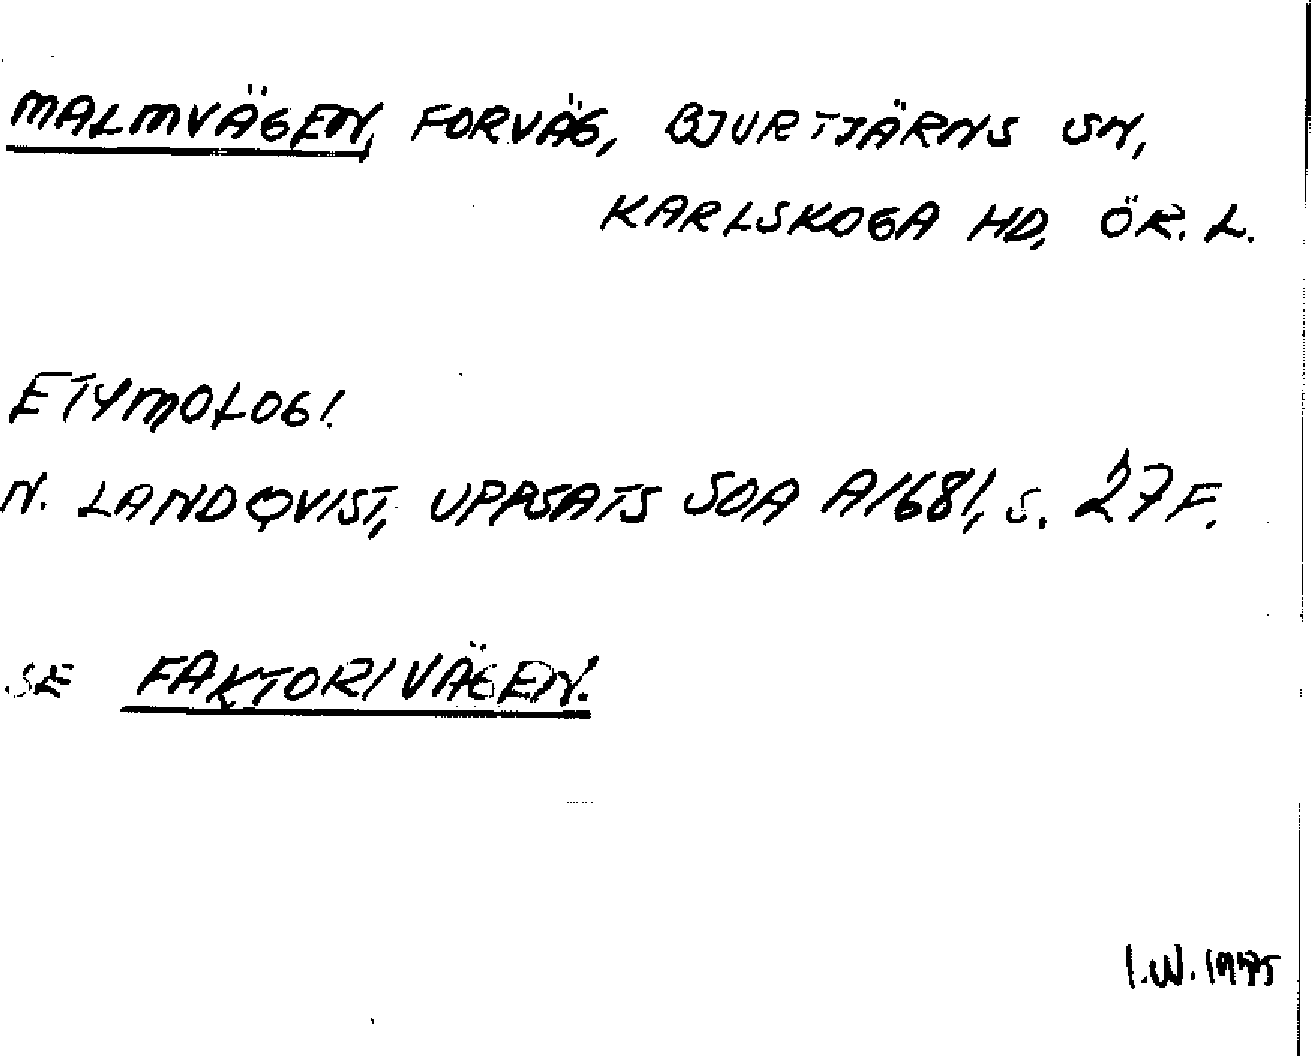 MALMVÄGEN, FORVÄG, BJURTJÄRNS SN,
KARLSKOGA HD, ÖR. L.
ETYMOLOGI.
N. LANDQVIST, UPPSATS SOA A1681, S. 27 F.
SE FAKTORIVÄGEN.
I.W. 1975